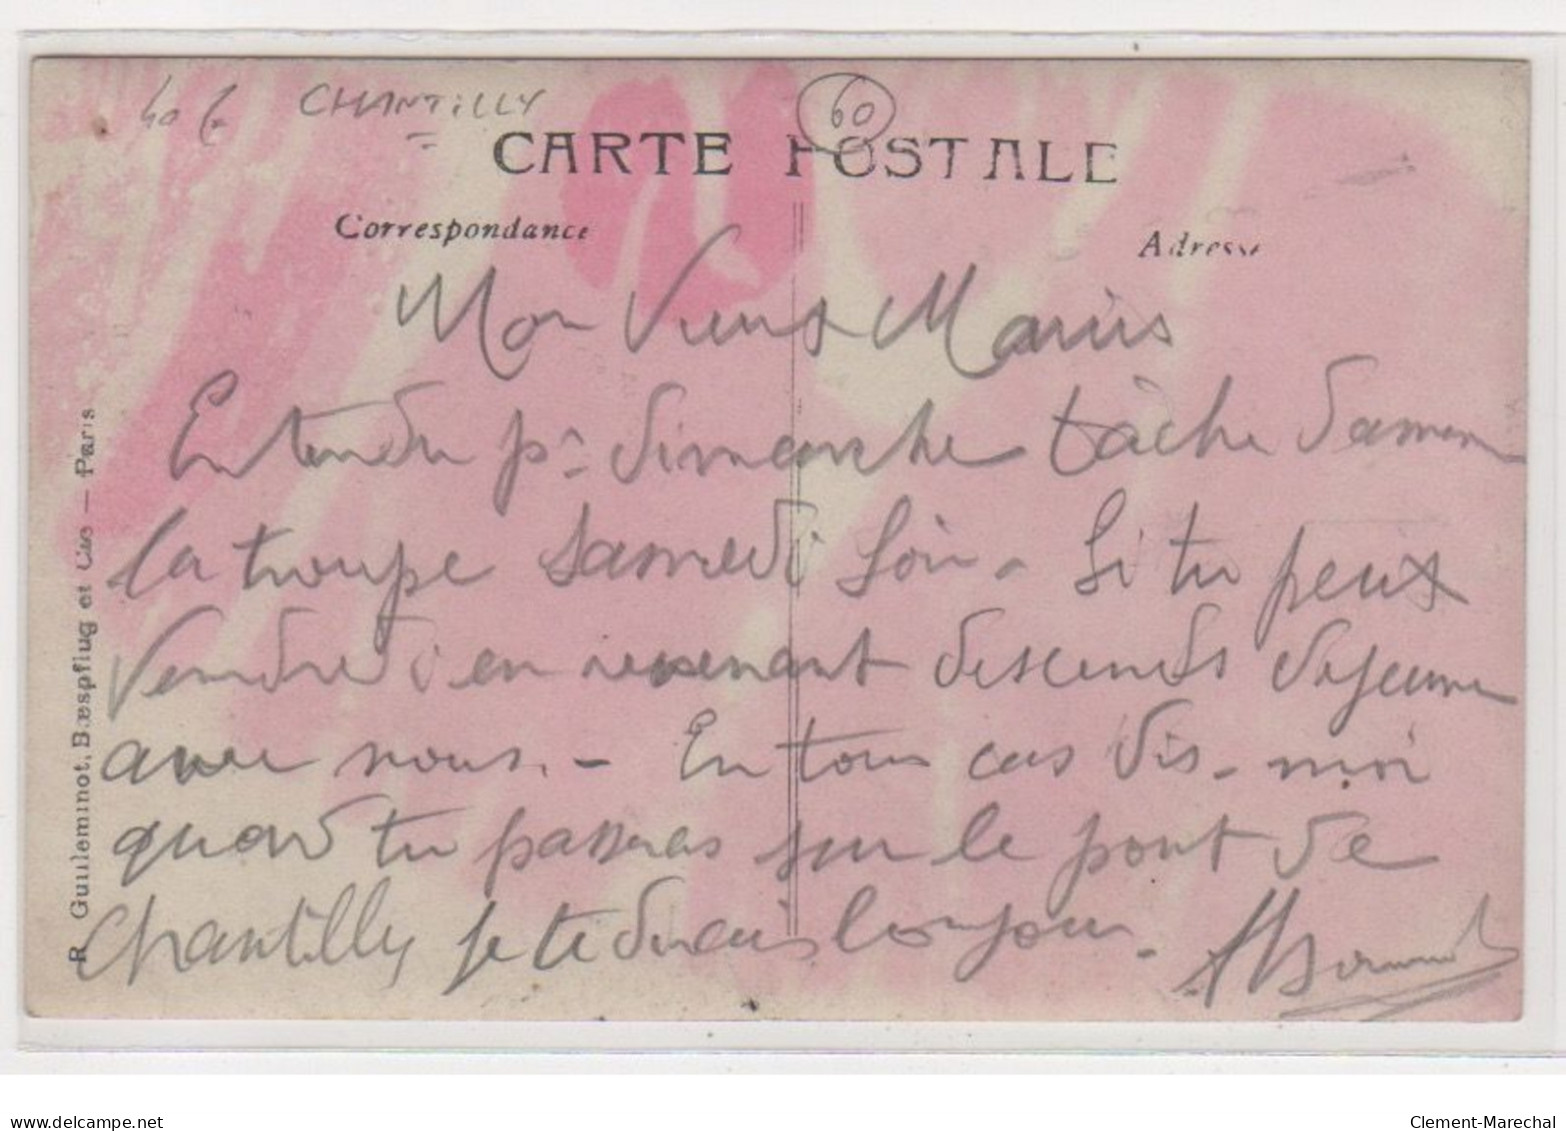 40 €
CHANTILLY
60
CARTE POSTALE
Correspondance
Adresse
Mon Vieux Marius
Entendu pr dimanche tâche d'amener
la troupe samedi soir - Si tu peux
Vendredi en revenant descends dejeuner
avec nous. - En tous cas dis-moi
quand tu passeras sur le pont de
Chantilly je te dirais bonjour.
R. Guilleminot, Bœspflug et Cie — Paris
delcampe.net
Clement-Marechal